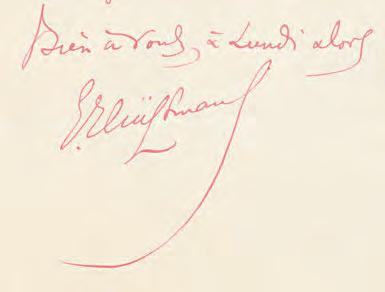 Bien à vous, à Lundi alors
G. Huÿsmans